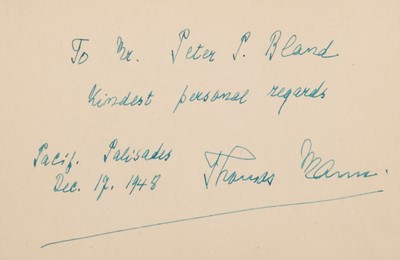 To Mr. Peter P. Bland
Kindest personal regards
Pacif. Palisades
Dec. 17. 1948
Thomas Mann.